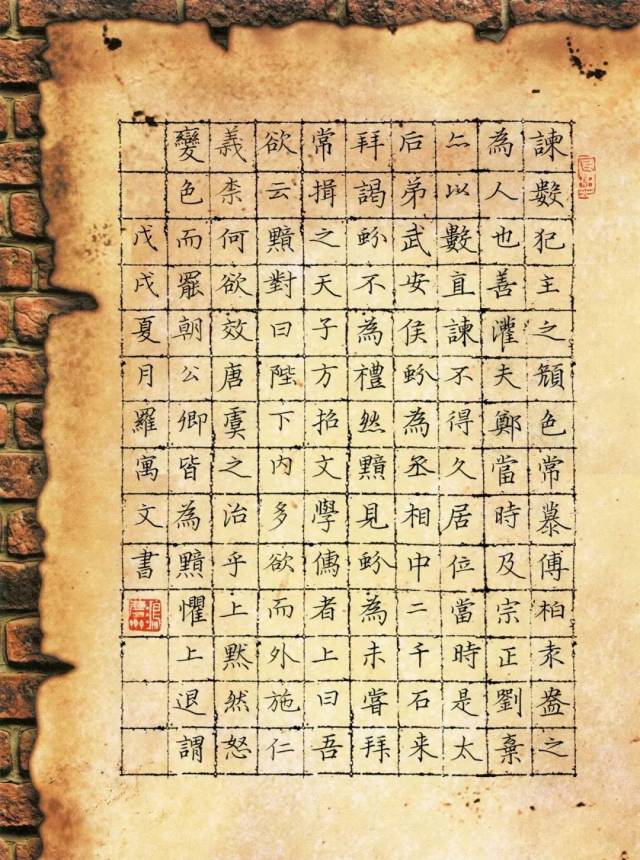 諫數犯主之顏色常慕傅柏袁盎之
為人也善灌夫鄭當時及宗正劉棄
亦以數直諫不得久居位當時是太
后弟武安侯蚡為丞相中二千石来
拜謁蚡不為禮然黯見蚡為未嘗拜
常揖之天子方招文學儒者上曰吾
欲云黯對曰陛下内多欲而外施仁
義柰何欲效唐虞之治乎上默然怒
變色而罷朝公卿皆為黯懼上退謂
戊戌夏月羅寓文書